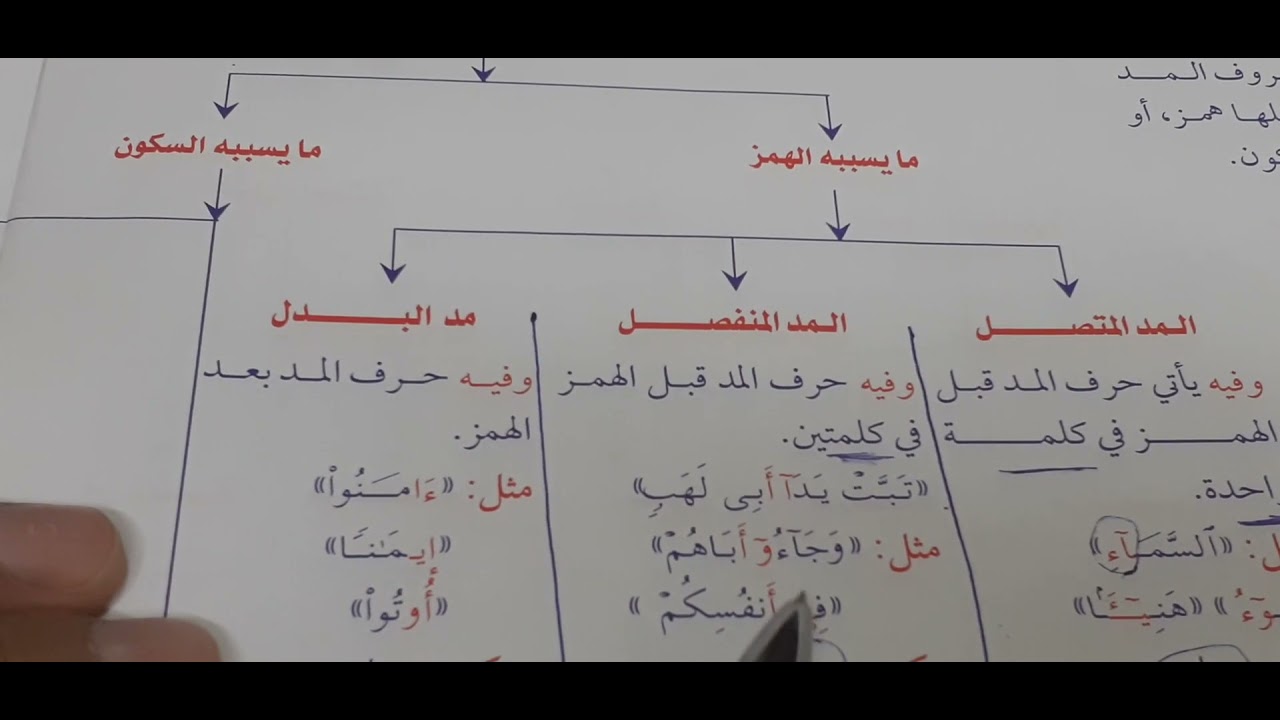 روف المد
لها همز، أو
كون.
ما يسببه الهمز
ما يسببه السكون
المد المتصل
وفيه يأتي حرف المد قبل
الهمز في كلمة
واحدة.
مثل: «ٱلسَّمَآءِ»
«هَنِيٓـًٔا»
المد المنفصل
وفيه حرف المد قبل الهمز
في كلمتين.
«تَبَّتْ يَدَآ أَبِى لَهَبٍ»
مثل: «وَجَآءُوٓ أَبَاهُمْ»
أَنفُسِكُمْ»
مد البدل
وفيه حرف المد بعد
الهمز.
مثل: «ءَامَنُوا۟»
«إِيمَـٰنًا»
«أُوتُوا۟»